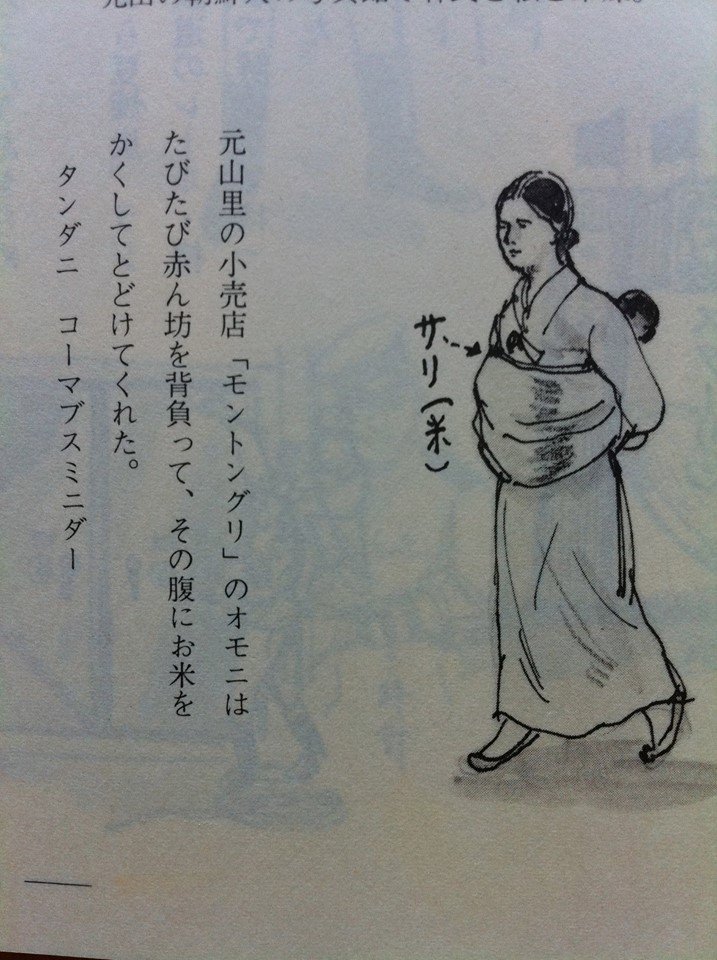 元山里の小売店「モントングリ」のオモニは
たびたび赤ん坊を背負って、その腹にお米を
かくしてとどけてくれた。
タンダニ　コーマブスミニダー
サリ(米)